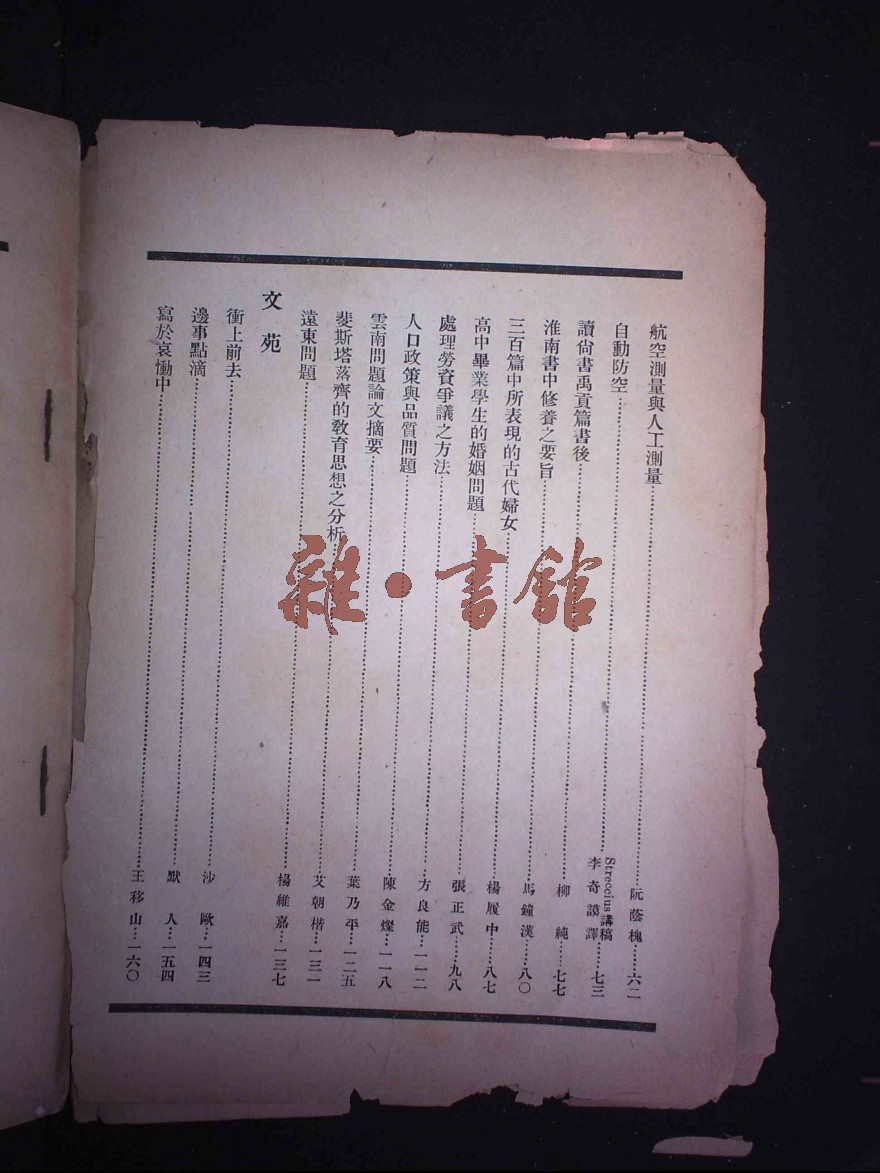 航空測量與人工測量……阮蔭槐……六二
自動防空……Streccius講稿 李奇謨譯……七三
讀尚書禹貢篇書後……柳純……七七
淮南書中修養之要旨……馬鐘漢……八〇
三百篇中所表現的古代婦女……楊履中……八七
高中畢業學生的婚姻問題……張正武……九八
處理勞資爭議之方法……方良能……一一二
人口政策與品質問題……陳金燦……一一八
雲南問題論文摘要……葉乃平……一二五
斐斯塔落齊的敎育思想之分析……艾朝楷……一三一
遠東問題……楊維嘉……一三七
文苑
衝上前去……沙歐……一四三
邊事點滴……默人……一五四
寫於哀慟中……王移山……一六〇
雜·書館